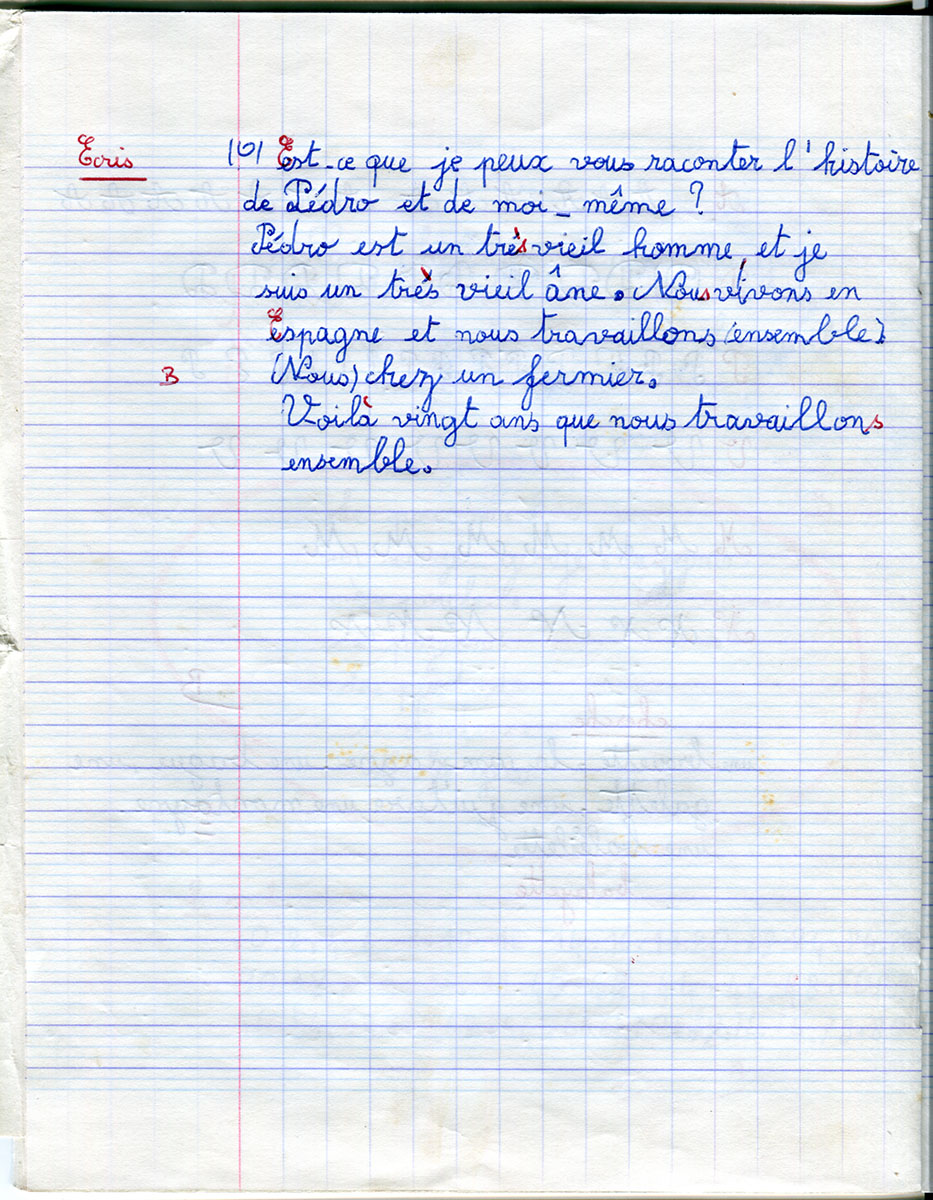 Ecris (6) Est-ce que je peux vous raconter l'histoire
de Pédro et de moi-même ?
Pédro est un très vieil homme et je
suis un très vieil âne. Nous vivons en
Espagne et nous travaillons (ensemble)
B (Nous) chez un fermier.
Voilà vingt ans que nous travaillons
ensemble.
cherche